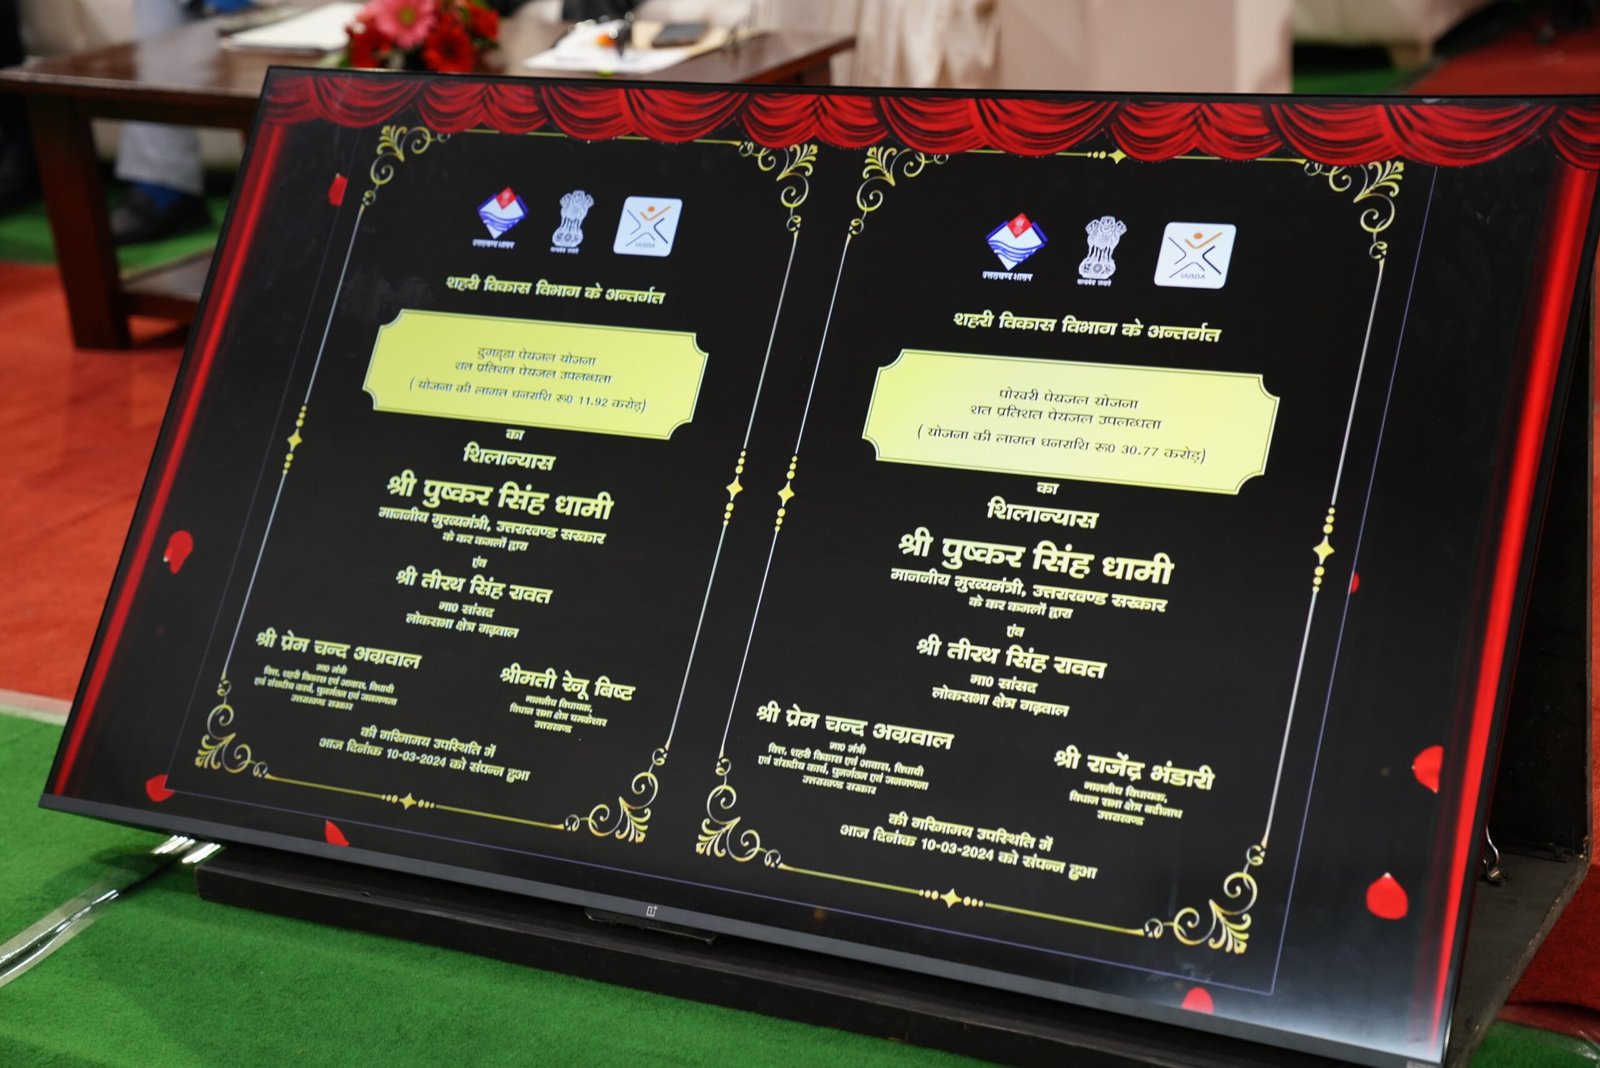 उत्तराखण्ड शासन
सत्यमेव जयते
UUSDA
शहरी विकास विभाग के अन्तर्गत
दुगड्डा पेयजल योजना
शत प्रतिशत पेयजल उपलब्धता
( योजना की लागत धनराशि रू0 11.92 करोड़)
का
शिलान्यास
श्री पुष्कर सिंह धामी
माननीय मुख्यमंत्री, उत्तराखण्ड सरकार
के कर कमलों द्वारा
एंव
श्री तीरथ सिंह रावत
मा0 सांसद
लोकसभा क्षेत्र गढ़वाल
श्री प्रेम चन्द अग्रवाल
मा0 मंत्री
वित्त, शहरी विकास एवं आवास, विधायी
एवं संसदीय कार्य, पुनर्गठन एवं जनगणना
उत्तराखण्ड सरकार
श्रीमती रेनू बिष्ट
माननीय विधायक,
विधान सभा क्षेत्र यमकेश्वर
उत्तराखण्ड
की गरिमामय उपस्थिति में
आज दिनांक 10-03-2024 को संपन्न हुआ
उत्तराखण्ड शासन
सत्यमेव जयते
UUSDA
शहरी विकास विभाग के अन्तर्गत
पोखरी पेयजल योजना
शत प्रतिशत पेयजल उपलब्धता
( योजना की लागत धनराशि रू0 30.77 करोड़)
का
शिलान्यास
श्री पुष्कर सिंह धामी
माननीय मुख्यमंत्री, उत्तराखण्ड सरकार
के कर कमलों द्वारा
एंव
श्री तीरथ सिंह रावत
मा0 सांसद
लोकसभा क्षेत्र गढ़वाल
श्री प्रेम चन्द अग्रवाल
मा0 मंत्री
वित्त, शहरी विकास एवं आवास, विधायी
एवं संसदीय कार्य, पुनर्गठन एवं जनगणना
उत्तराखण्ड सरकार
श्री राजेंद्र भंडारी
माननीय विधायक,
विधान सभा क्षेत्र बद्रीनाथ
उत्तराखण्ड
की गरिमामय उपस्थिति में
आज दिनांक 10-03-2024 को संपन्न हुआ